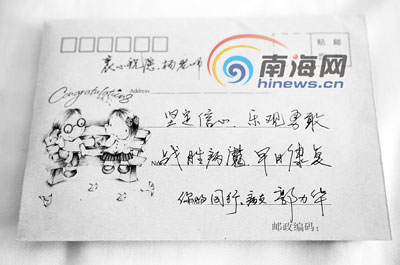 贴邮
衷心祝愿，杨老师
南海网
hinews.cn
Congratulations
Address
坚定信心、乐观勇敢
Name
战胜病魔 早日康复
你的同行、病友 郭力华
邮政编码：